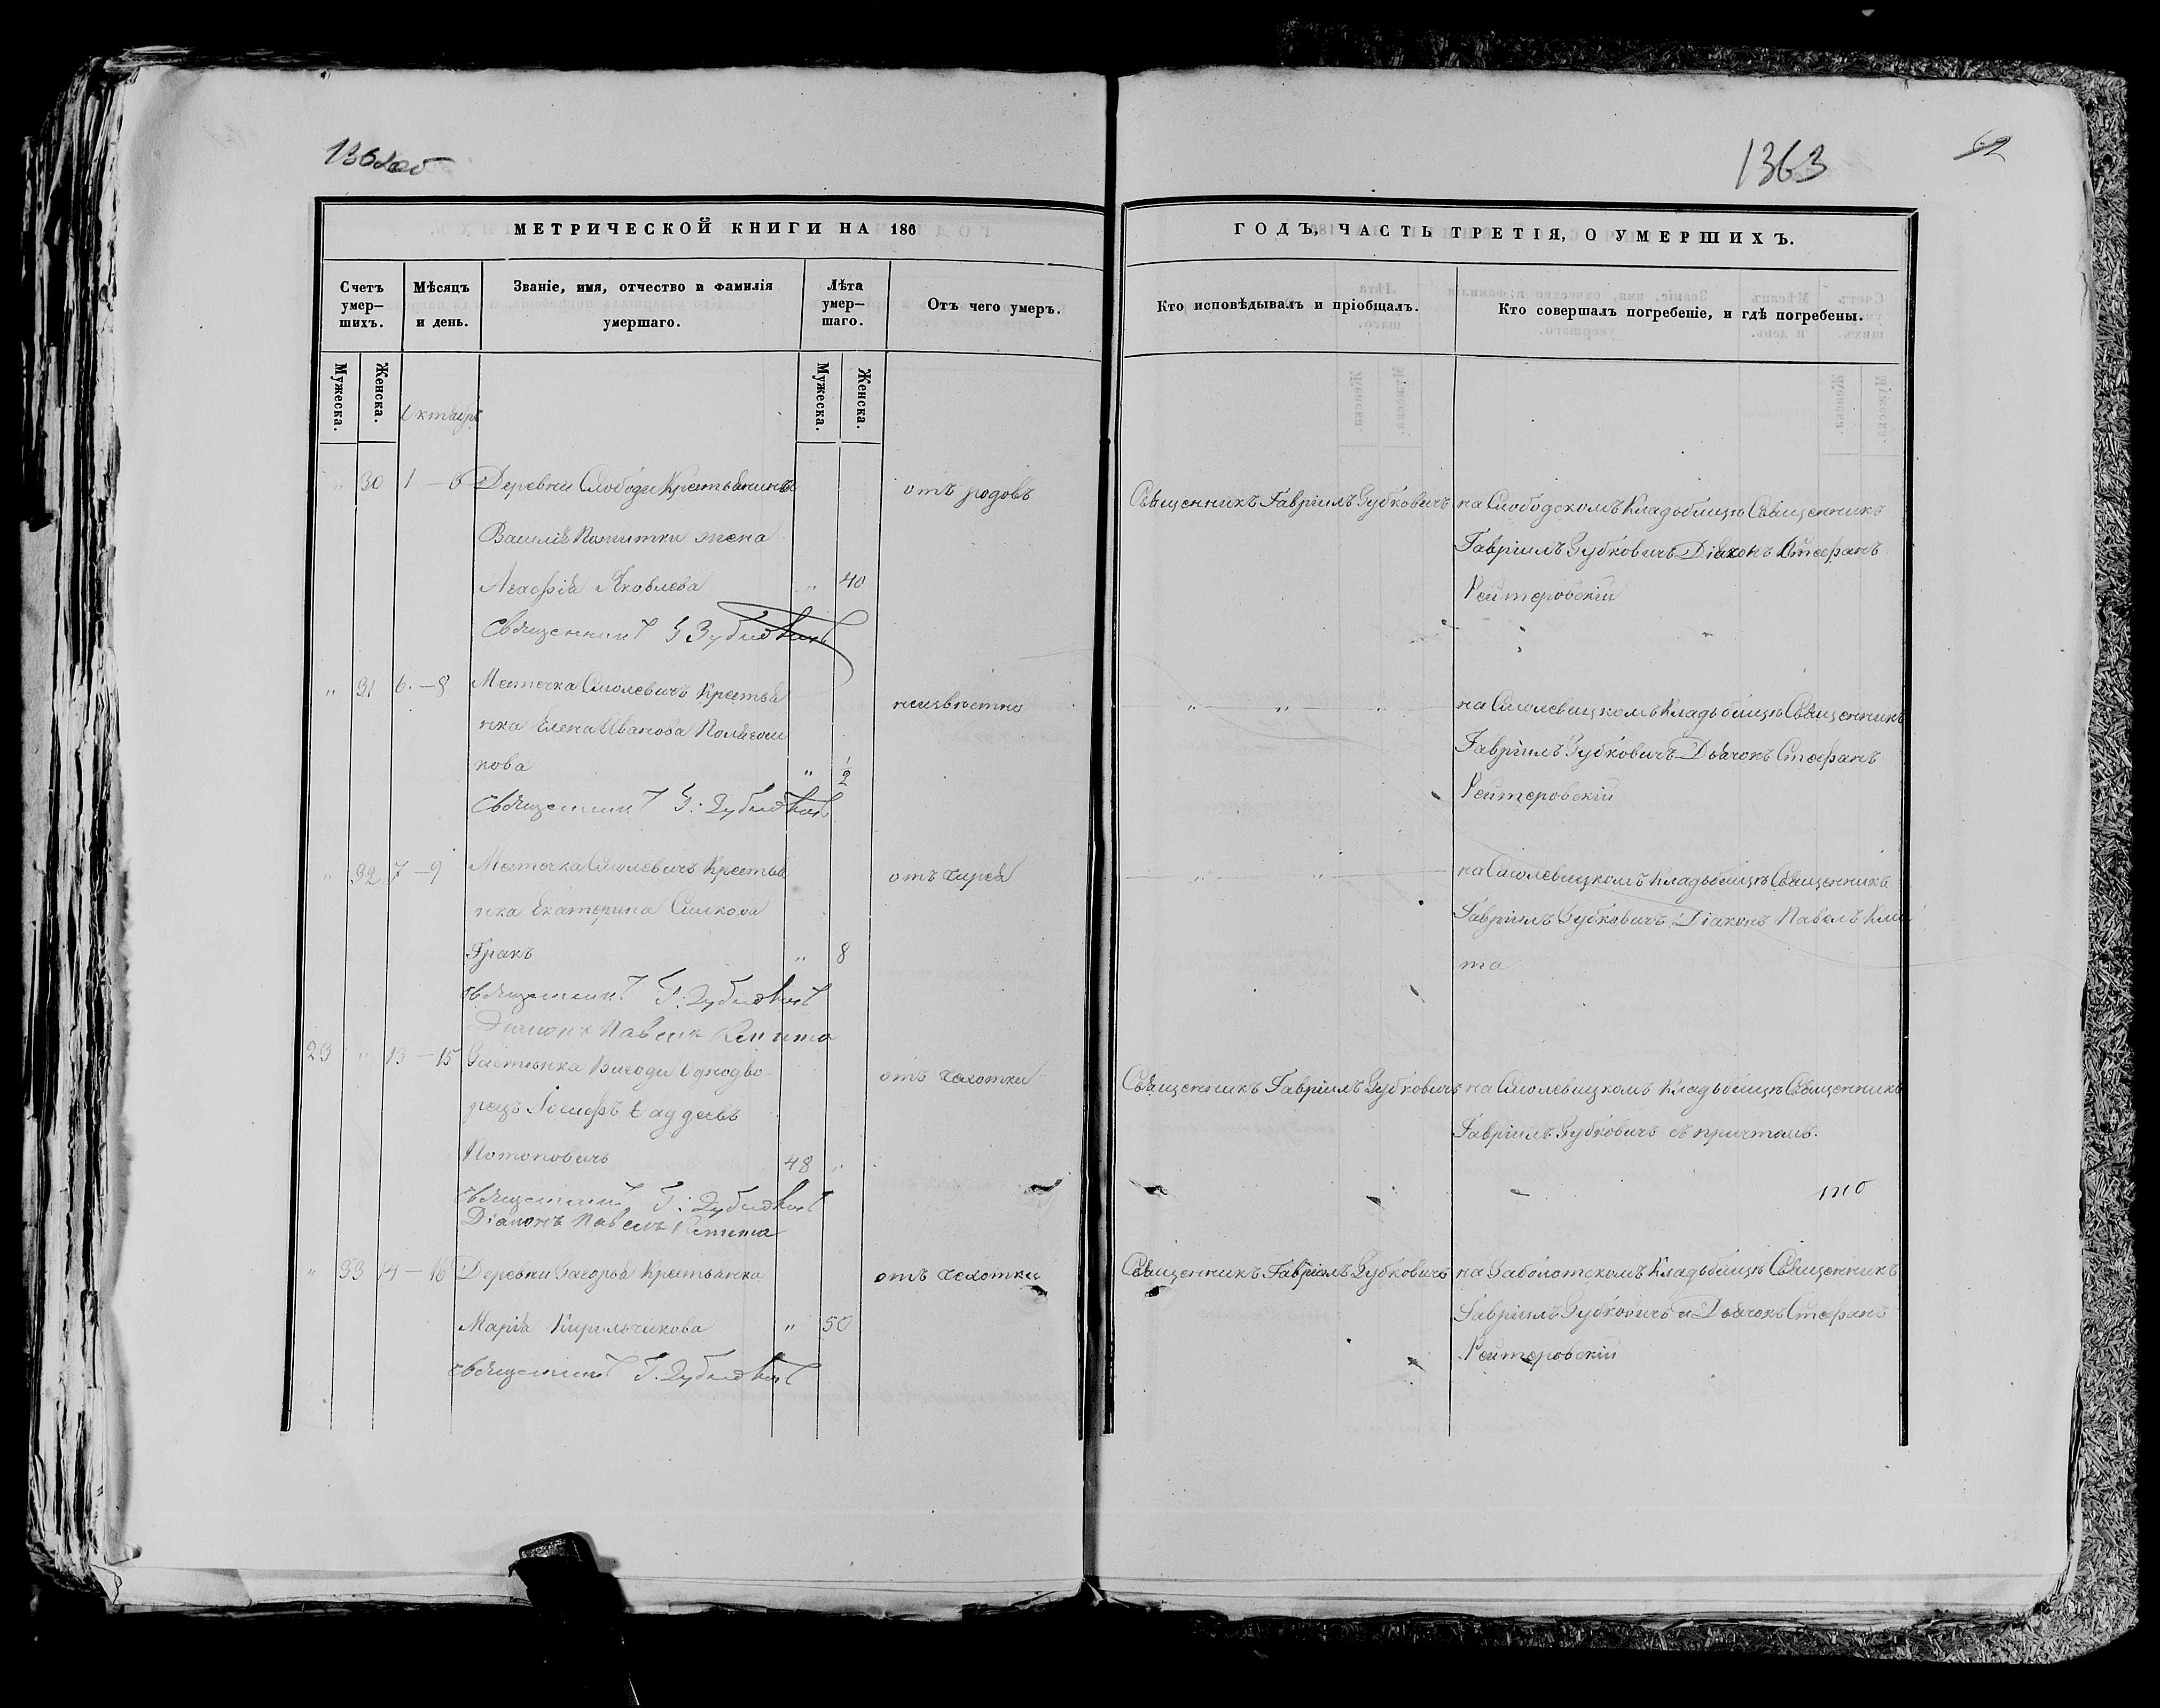 1362об
1363
62
МЕТРИЧЕСКОЙ КНИГИ НА 186
ГОДЪ, ЧАСТЬ ТРЕТІЯ, О УМЕРШИХЪ.
Счетъ умер-шихъ.
Мѣсяцъ и день.
Званіе, имя, отчество и фамилія умершаго.
Лѣта умер-шаго.
Отъ чего умеръ.
Кто исповѣдывалъ и пріобщалъ.
Кто совершалъ погребеніе, и гдѣ погребены.
Мужеска.
Женска.
Мужеска.
Женска.
Октябрь
" 30 1 — 3 Деревни Слободи Крестьянина отъ родовъ Священникъ Гавріилъ Зубковичъ на Слободскомъ Кладьбищѣ Священникъ
Василія жена
Гавріилъ Зубковичъ Діаконъ Стефанъ
Агафія Яковлева " 40
Рейтеровскій
Священникъ Г Зубковичъ
" 31 6 — 8 Местечка Смолевичъ Крестья неизвѣстно " " " на Смолевицкомъ Кладьбищѣ Священникъ
нка Елена Иванова
Гавріилъ Зубковичъ Дьячокъ Стефанъ
кова " 1/2
Рейтеровскій
Священникъ Г. Зубковичъ
" 32 7 — 9 Местечка Смолевичъ Крестья отъ " " на Смолевицкомъ Кладьбищѣ Священникъ
нка Екатерина Симкова
Гавріилъ Зубковичъ Діаконъ Павелъ Кми
Гракъ " 8
та
Священникъ Г. Зубковичъ
Діаконъ Павелъ Кмита
23 " 13 — 15 Застѣнка Вигоди Однодво- отъ сухотки Священникъ Гавріилъ Зубковичъ на Смолевицкомъ Кладьбищѣ Священникъ
рецъ Іосифъ Фаддеевъ
Гавріилъ Зубковичъ съ причтомъ.
Потоповичъ 48 "
Священникъ Г. Зубковичъ
Діаконъ Павелъ Кмита
" 33 14 — 16 Деревни Загорья Крестьянка отъ сухотки Священникъ Гавріилъ Зубковичъ на Заболотскомъ Кладьбищѣ Священникъ
Марія Кирильчикова " 50
Гавріилъ Зубковичъ и Дьячокъ Стефанъ
Рейтеровскій
Священникъ Г. Зубковичъ